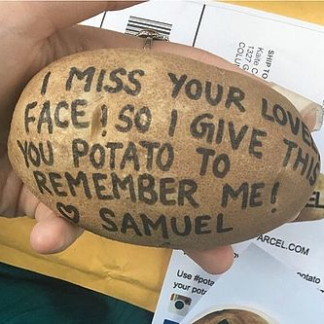 SHIP TO
Katie C
1327 G
COLU
I MISS YOUR LOVE
FACE! SO I GIVE THIS
YOU POTATO TO
REMEMBER ME!
♡ SAMUEL
ARCEL.COM
Use #pota
your pot